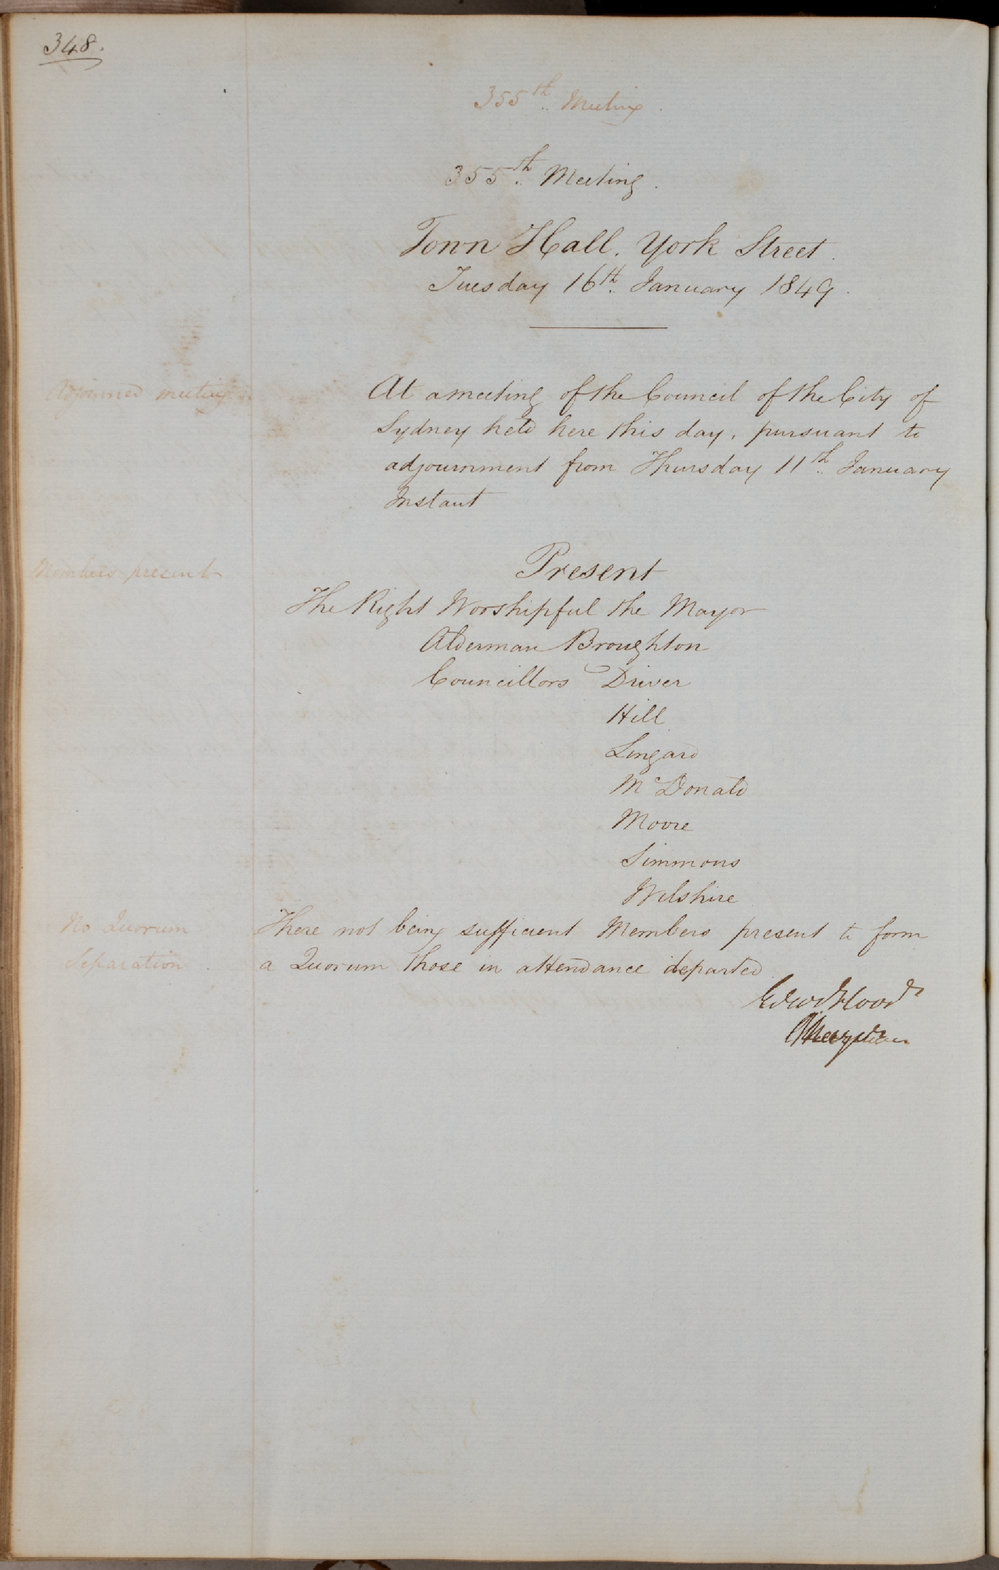 348.
355th. Meeting.
355th. Meeting.
Town Hall. York Street.
Tuesday 16th. January 1849.
Adjourned meeting
At a meeting of the Council of the City of
Sydney held here this day, pursuant to
adjournment from Thursday 11th. January
Instant
Members present
Present
The Right Worshipful the Mayor
Alderman Broughton
Councillors Driver
Hill
Lingard
McDonald
Moore
Simmons
Wilshire
No Quorum
Separation
There not being sufficient Members present to form
a Quorum those in attendance departed
Edwd Flood